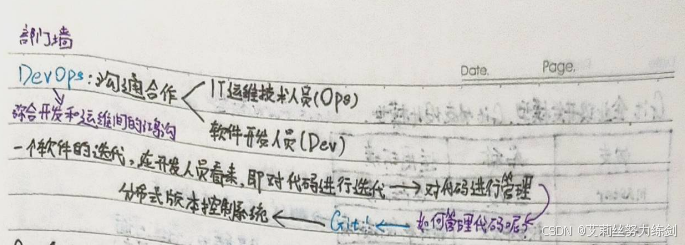 部门墙
Date. Page.
DevOps:沟通合作
IT运维技术人员(Ops)
软件开发人员(Dev)
弥合开发和运维间的鸿沟
一个软件的迭代,在开发人员看来,即对代码进行迭代→对代码进行管理
分布式版本控制系统←Git:←如何管理代码呢?
CSDN @艾莉丝努力练剑